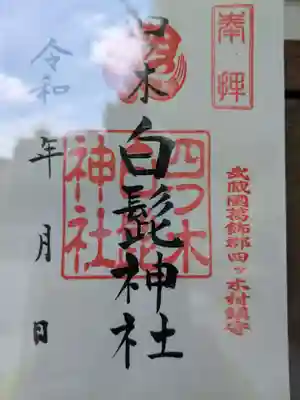 奉拝
武蔵國葛飾郡四ッ木村鎮守
四つ木
白髭神社
四つ木
白髭
神社
令和
年月日